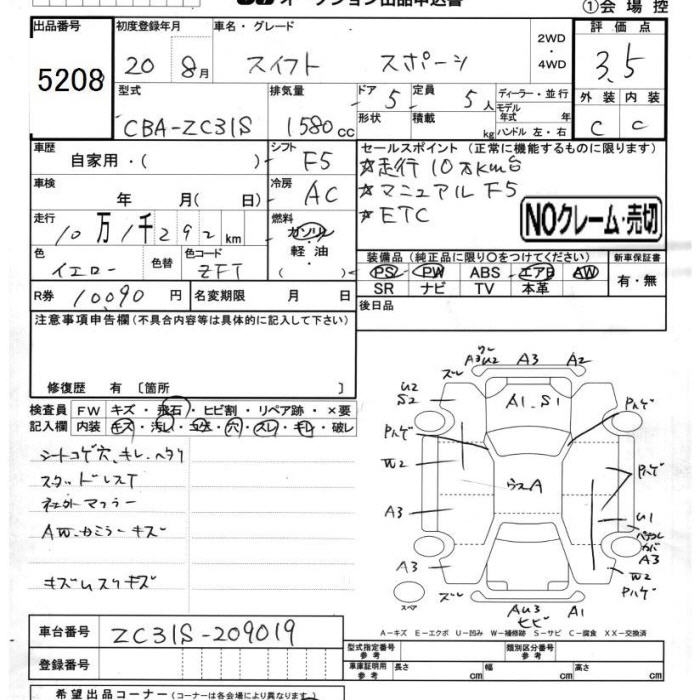 オークション出品申込書
①会場控
出品番号
5208
初度登録年月
20 8月
車名・グレード
スイフト スポーツ
2WD
・
4WD
評価点
3.5
型式
CBA-ZC31S
排気量
1580cc
ドア
5
定員
5人
ディーラー・並行
モデル年式 年
ハンドル 左・右
形状
積載
kg
外装 内装
C C
車歴
自家用・( )
シフト
F5
セールスポイント (正常に機能するものに限ります)
☆走行10万km台
☆マニュアルF5
☆ETC
NOクレーム・売切
車検
年 月( 日)
冷房
AC
走行
10万1千292km
燃料
ガソリン
・
軽油
( )
色
イエロー
色替
色コード
ZFT
装備品 (純正品に限り○をつけてください)
PS PW ABS エアB AW
SR ナビ TV 本革
新車保証書
有・無
R券
10090円
名変期限 月 日
後日品
注意事項申告欄 (不具合内容等は具体的に記入して下さい)
修復歴 有 〔箇所 〕
検査員 FW キズ・飛石・ヒビ割・リペア跡・×要
記入欄 内装 キズ・汚れ・コゲ・穴・スレ・キレ・破レ
シートコゲ穴、キレ、ヘタリ
スタッドレスT
社外マフラー
AW、カミラーキズ
キズムスリキズ
A3 U2 A3 A2
ズレ
U2
S2
A1、S1
Pハゲ
Pハゲ
W2
ウスA
Pハゲ
A3
U1
A3
A3
W2
Pハゲ
スペア
ズレ
AU3
ヒビ
A1
A-キズ E-エクボ U-凹み W-補修跡 S-サビ C-腐食 XX-交換済
車台番号
ZC31S-209019
登録番号
型式指定番号
参考
類別区分番号
参考
車庫証明用
参考
長さ cm
幅 cm
高さ cm
希望出品コーナー (コーナーは各会場により異なります)